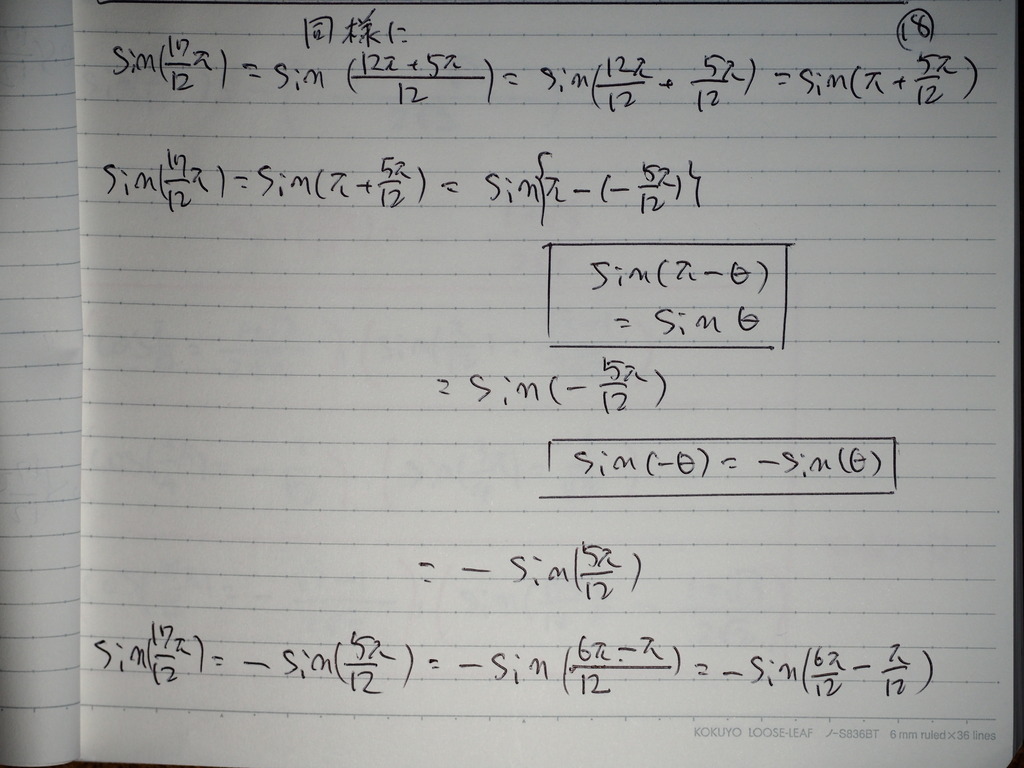 同様に ⑱
sin(17/12 π) = sin((12π+5π)/12) = sin(12π/12 + 5π/12) = sin(π + 5π/12)
sin(17/12 π) = sin(π + 5π/12) = sin{π - (-5π/12)}
sin(π - θ)
= sin θ
= sin(-5π/12)
sin(-θ) = -sin(θ)
= - sin(5π/12)
sin(17π/12) = - sin(5π/12) = - sin((6π-π)/12) = - sin(6π/12 - π/12)
KOKUYO LOOSE-LEAF ノ-S836BT 6 mm ruled×36 lines